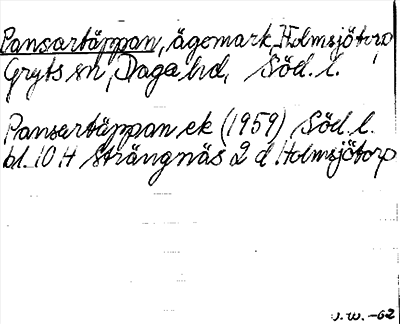 Pansartäppan, ägomark, Holmsjötorp
Gryts sn, Daga hd, Söd. l.
Pansartäppan, ek (1959) Söd. l.
bl. 10 H Strängnäs 2 d. Holmsjötorp
J.W. -62